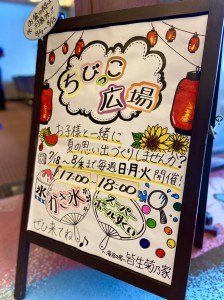 ちびっこ
広場
お子様と一緒に
夏の思い出づくりしませんか?
7/18〜8/末まで毎週日月火開催!
17:00〜18:00
氷
かき氷
スーパーボールすくい
ぜひ来てね♪
皆生菊乃家